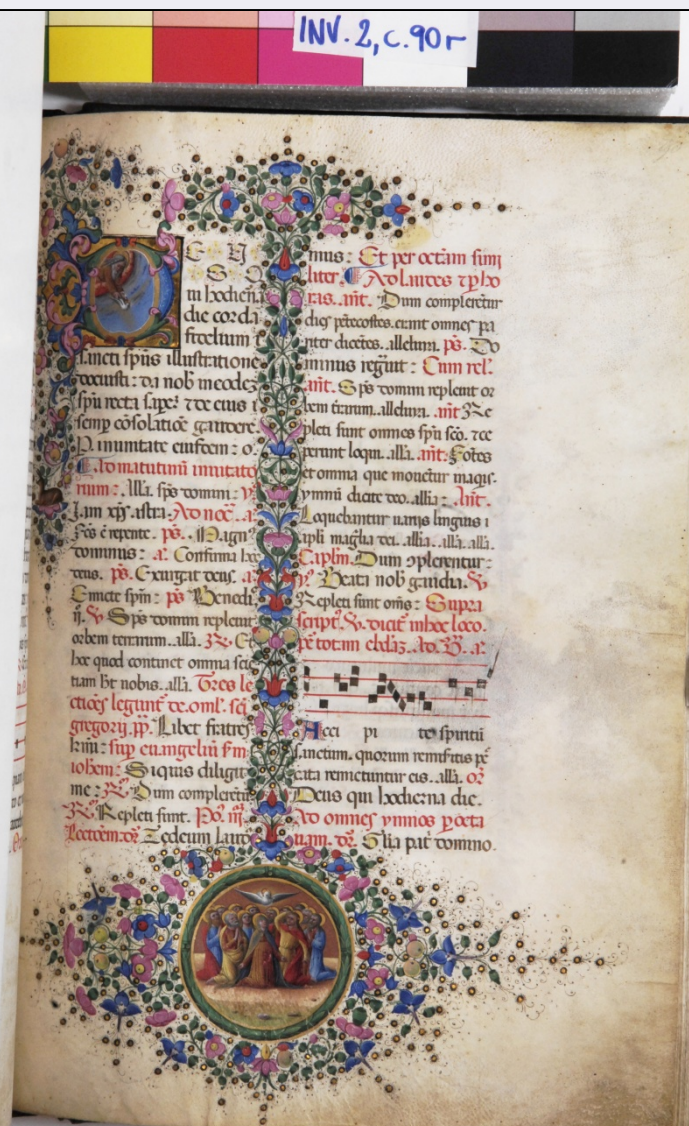 INV. 2, c. 90r
DEUS
QUI
in hodierna
die corda
fidelium s
sancti spūs illustratione
docuisti: da nob in eodez
spū recta sape: ⁊ de eius s
semp cōsolatiōe gaudere.
P. in unitate eiusdem: oř
Ad matutinū inuitato
rium: Alla. sps domini: ỹ
Iam xp̄s astra. Ad noct̄. a.
Fcūs ē repente. ps. Magn
dominus: a. Confirma hoc
deus. ps. Exurgat deus. a.
Emitte spm: ps Benedi
ij. ℣ Sp̄s domini repleuit
orbem terrarum. alla. ℟. Et
hoc quod continet omnia sci
tiam ht nobis. alla. Tres le
ctiōes legunt̄ de. oml̄. sci
gregorij. pp. Libet fratres
krm: sup euangeliū s'm
iohem: Siquis diligit
me: ℟ Dum complerētur
℟ Repleti sunt. Po. iij.
Lectiōem. dr̄ Tedeum lauda
mus: Et per octam simi
liter. Ad laudes ⁊ p ho
ras. ant. Dum complerētur
dies pētecostes. erant omnes pa
riter dicētes. alleluia. ps. Do
minus regnit: Cum rel.
ant. Sps domini repleuit or
bem terarum. alleluia. ant Re
pleti sunt omnes spū scō. ⁊ ce
perunt loqui. alla. ant. Fōtes
et omnia que mouētur in aqis.
ymnū dicite deo. allia: Ant.
Loquebantur uarijs linguis a
apli magña dei. allia. alla. alla.
Caplm. Dum ɔplerentur:
ỹ Beata nob gaudia. ℣
Repleti sunt oms: Supra
script. ℣. dicit in hoc loco.
pē totam ebdaz. Ad. B. a.
Acci pi te spiritū
sanctum. quorum remisitis pē
cata remictuntur eis. alla. or̄
Deus qui hodierna die.
Ad omnes ymnos p octa
uam. dr̄. Glia pat domino.